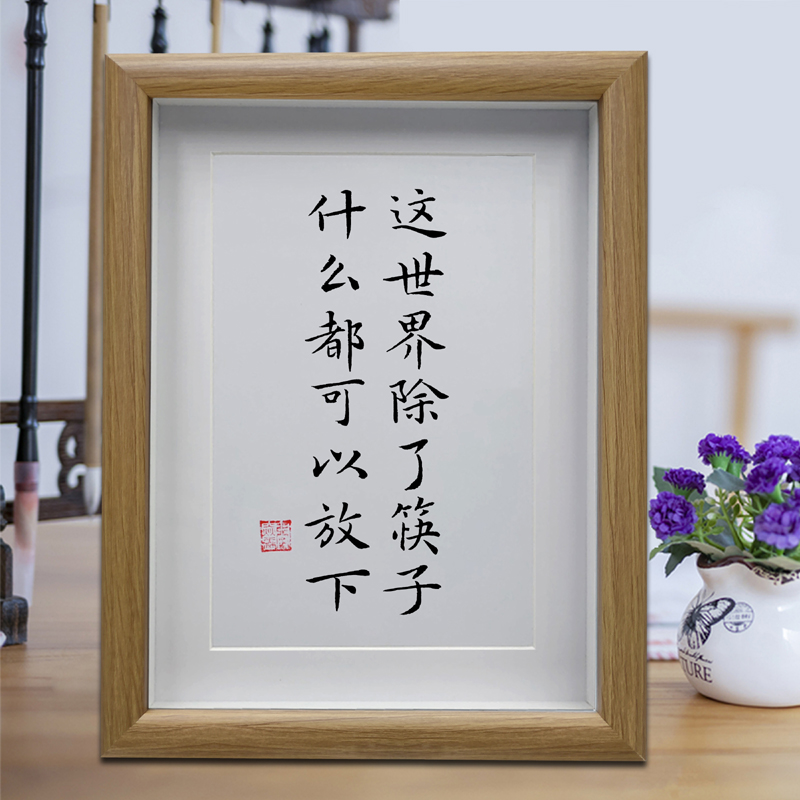 这世界除了筷子
什么都可以放下
TURE